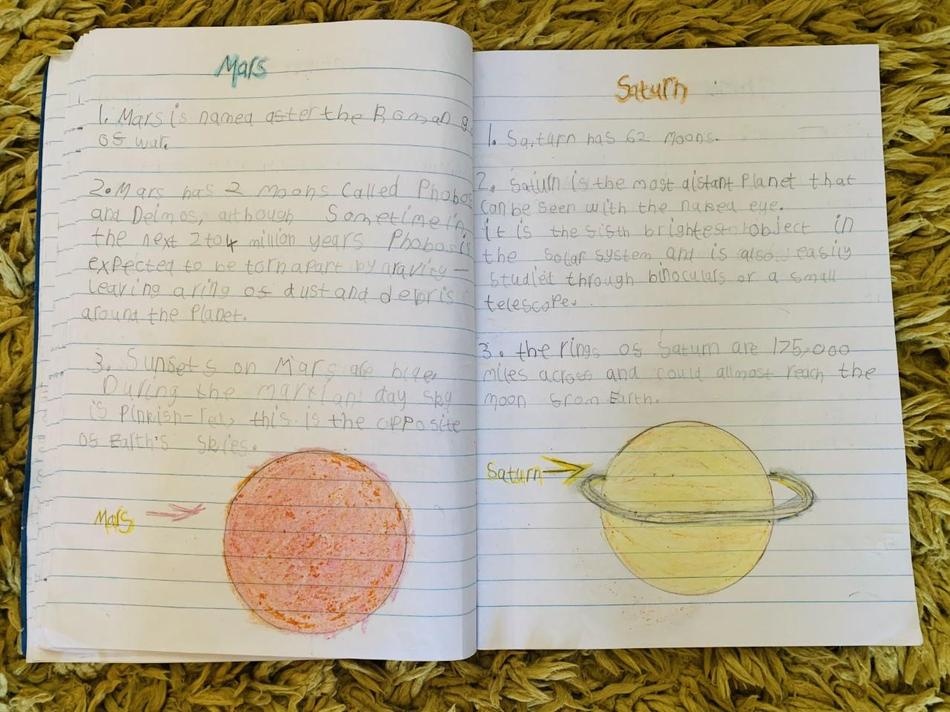 Mars
1. Mars is named aster the Roman g
os war.
2. Mars has 2 moons called Phobos
and Deimos, although Sometime in
the next 2 to 4 million years Phobos is
expected to be torn apart by gravity —
leaving a ring os dust and debris
around the Planet.
3. Sunsets on Mars are blue.
During the martian day sky
is Pinkish-red, this is the opposite
os Earth's skies.
Mars
Saturn
1. Saturn has 62 Moons.
2. Saturn is the most distant Planet that
can be seen with the naked eye.
it is the sisth brightest object in
the solar system and is also easily
studied through binoculars or a small
telescope.
3. the rings os Saturn are 175,000
miles across and could allmost reach the
moon srom Earth.
Saturn